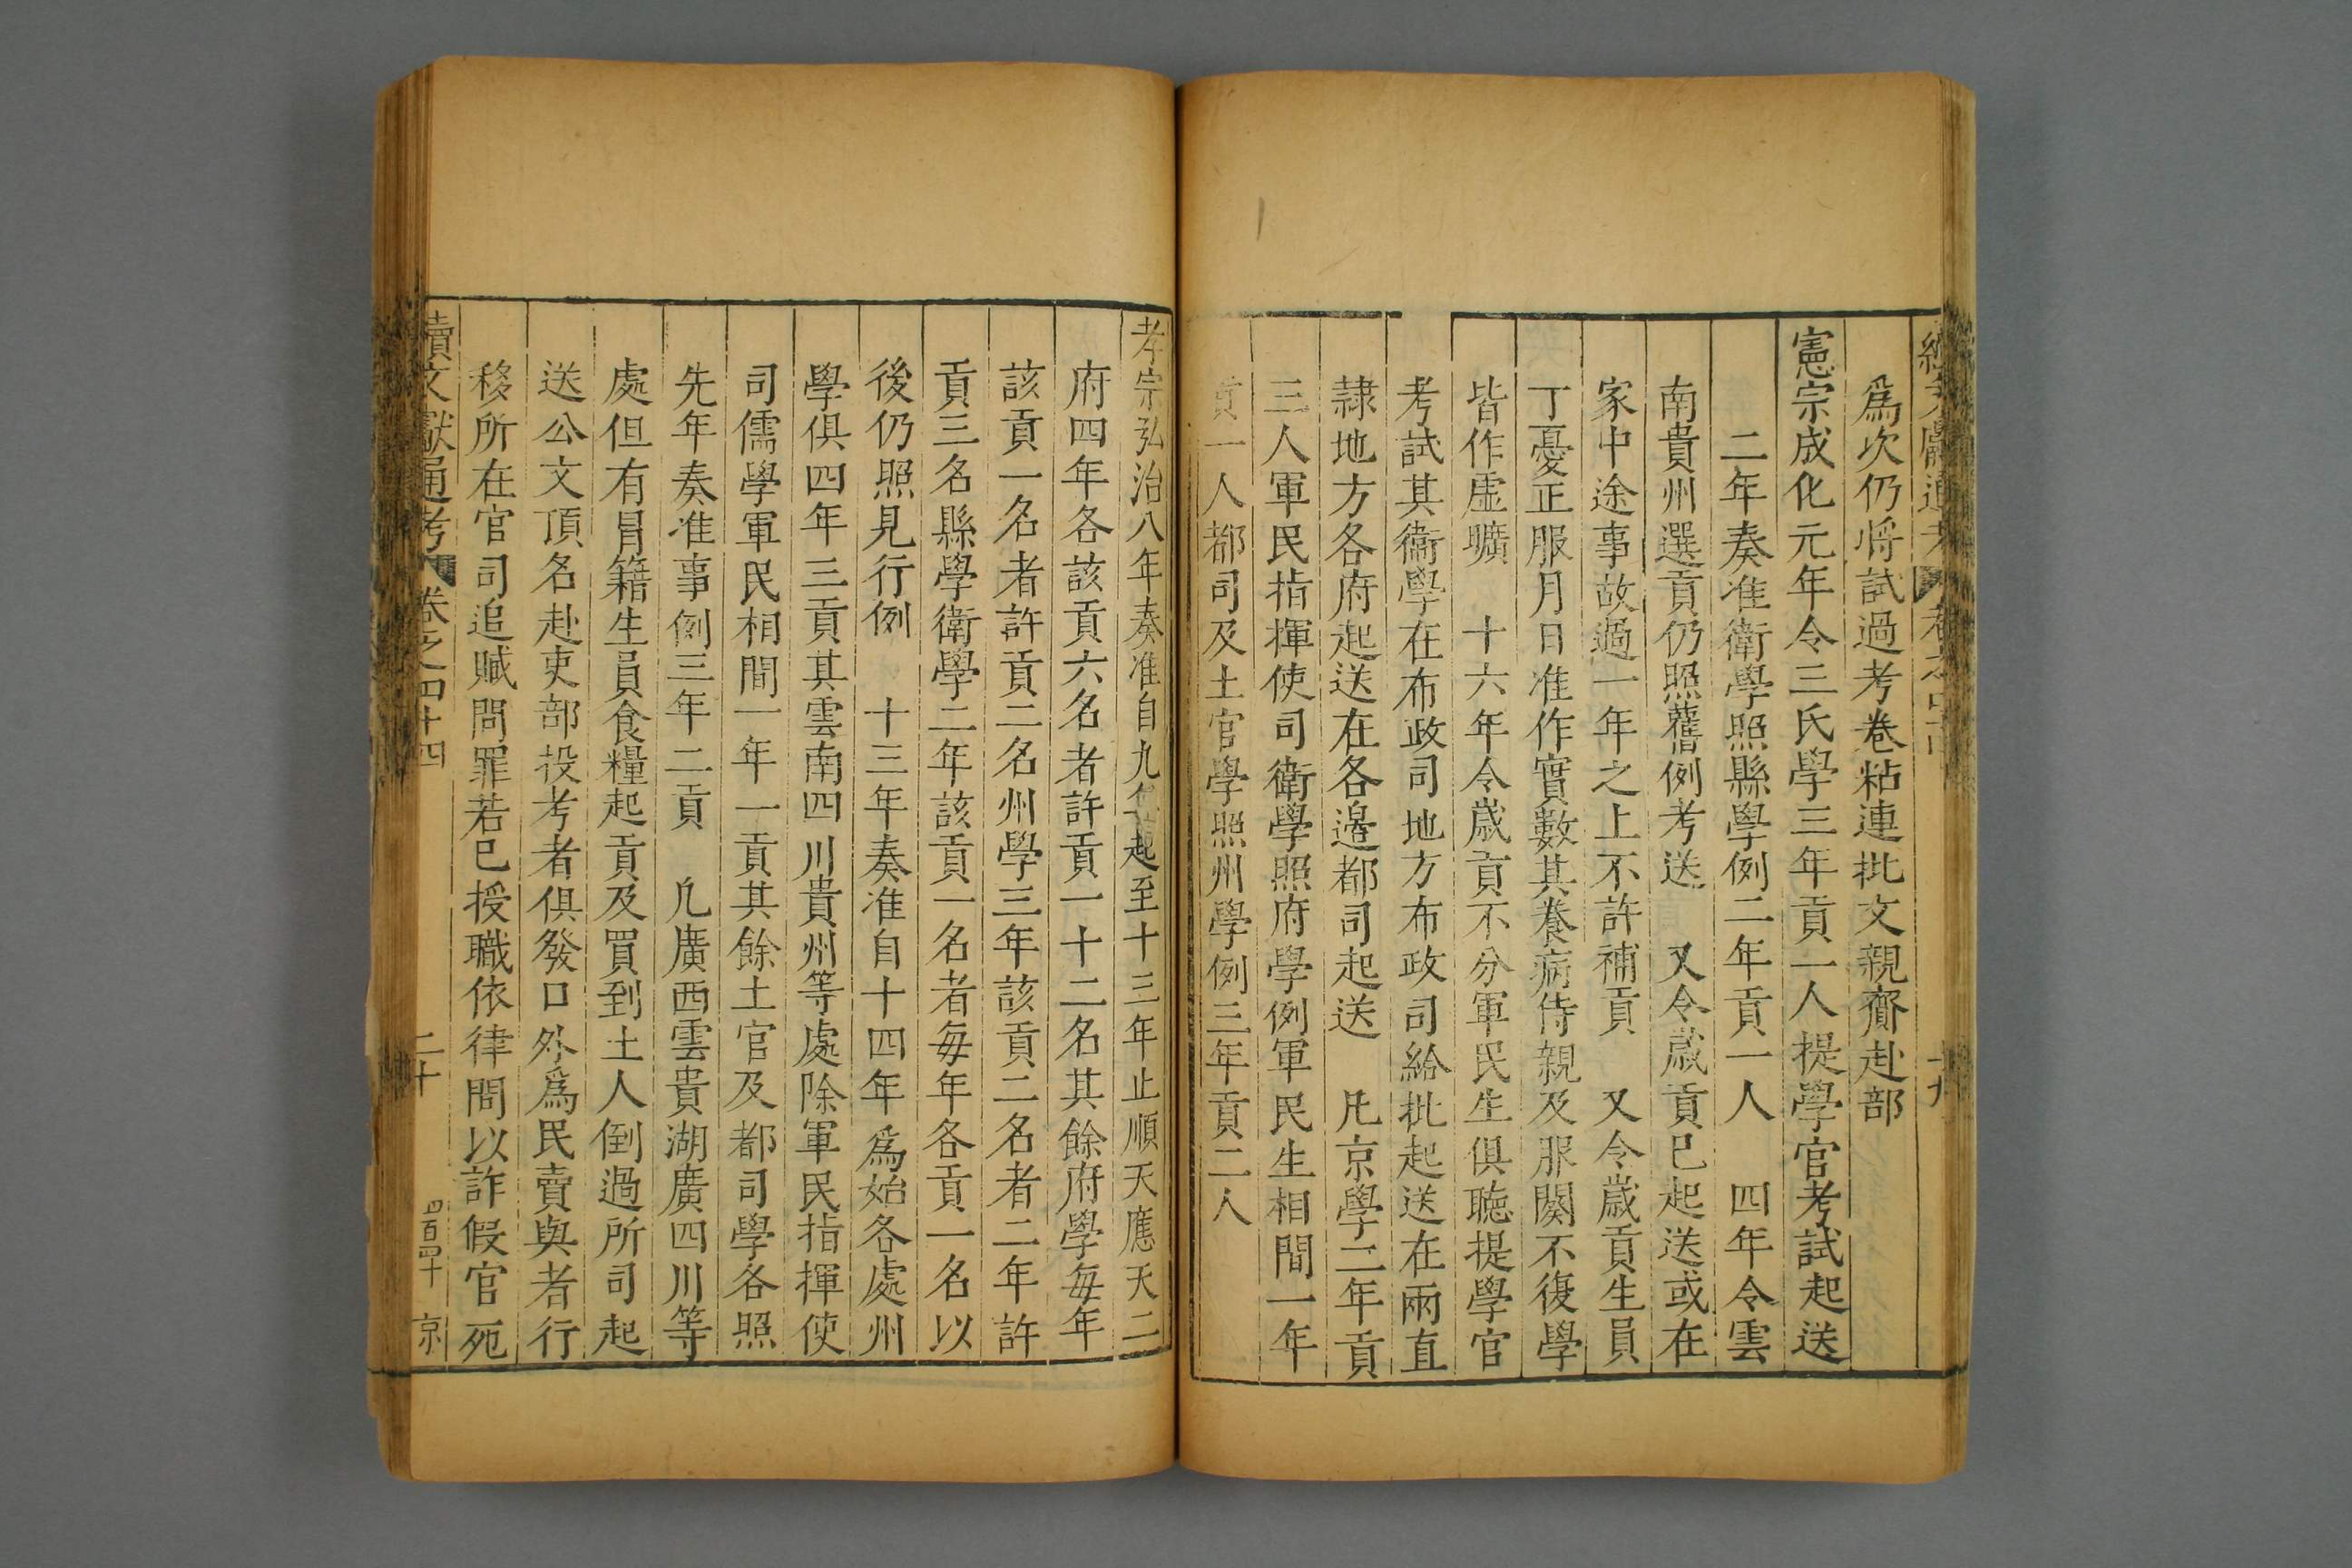 爲次仍將試過考卷粘連批文親齎赴部
憲宗成化元年令三氏學三年貢一人提學官考試起送
二年奏准衛學照縣學例二年貢一人 四年令雲
南貴州選貢仍照舊例考送 又令歲貢巳起送或在
家中途事故過一年之上不許補貢 又令歲貢生員
丁憂正服月日准作實數其養病侍親及服闋不復學
皆作虛曠 十六年令歲貢不分軍民生俱聽提學官
考試其衛學在布政司地方布政司給批起送在兩直
隷地方各府起送在各邊都司起送 凡京學二年貢
三人軍民指揮使司衛學照府學例軍民生相間一年
貢一人都司及土官學照州學例三年貢二人
孝宗弘治八年奏准自九年起至十三年止順天應天二
府四年各該貢六名者許貢一十二名其餘府學每年
該貢一名者許貢二名州學三年該貢二名者二年許
貢三名縣學衛學二年該貢一名者每年各貢一名以
後仍照見行例 十三年奏准自十四年爲始各處州
學俱四年三貢其雲南四川貴州等處除軍民指揮使
司儒學軍民相間一年一貢其餘土官及都司學各照
先年奏准事例三年二貢 凡廣西雲貴湖廣四川等
處但有冐籍生員食糧起貢及買到土人倒過所司起
送公文頂名赴吏部投考者俱發口外爲民賣與者行
移所在官司追贓問罪若巳授職依律問以詐假官死
續文獻通考 卷之四十四 二十 四百四十 京